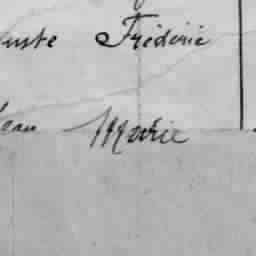 uste Frédéric
ean Marie